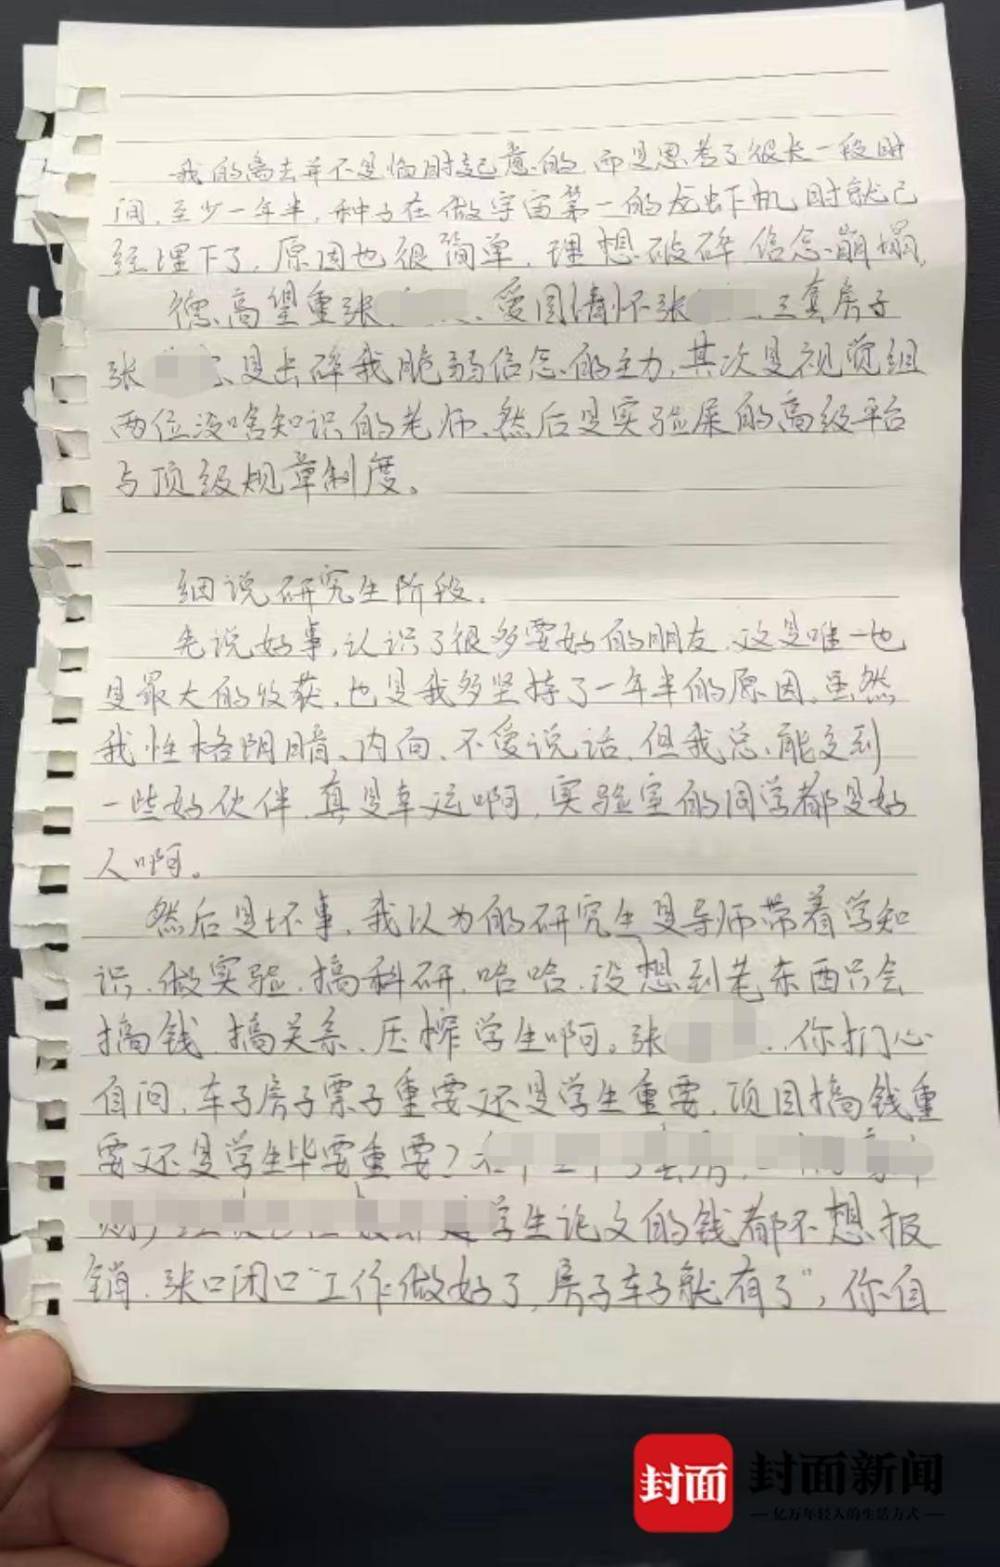 我的离去并不是临时起意的，而是思考了很长一段时
间，至少一年半，种子在做宇宙第一的龙虾机时就已
经埋下了，原因也很简单，理想破碎，信念崩塌，
德高望重张、爱国情怀张、三套房子
张是击碎我脆弱信念的主力，其次是视觉组
两位没啥知识的老师、然后是实验室的高级平台
与顶级规章制度。
细说研究生阶段，
先说好事，认识了很多要好的朋友，这是唯一也
是最大的收获，也是我多坚持了一年半的原因，虽然
我性格阴暗、内向、不爱说话，但我总能交到
一些好伙伴，真是幸运啊，实验室的同学都是好
人啊。
然后是坏事，我以为的研究生是导师带着学知
识、做实验、搞科研，哈哈，没想到老东西只会
搞钱、搞关系、压榨学生啊。张，你扪心
自问，车子房子票子重要还是学生重要，项目搞钱重
要还是学生毕要重要？
学生论文的钱都不想报
销，张口闭口“工作做好了，房子车子就有了”，你自
封面
封面新闻
亿万年轻人的生活方式